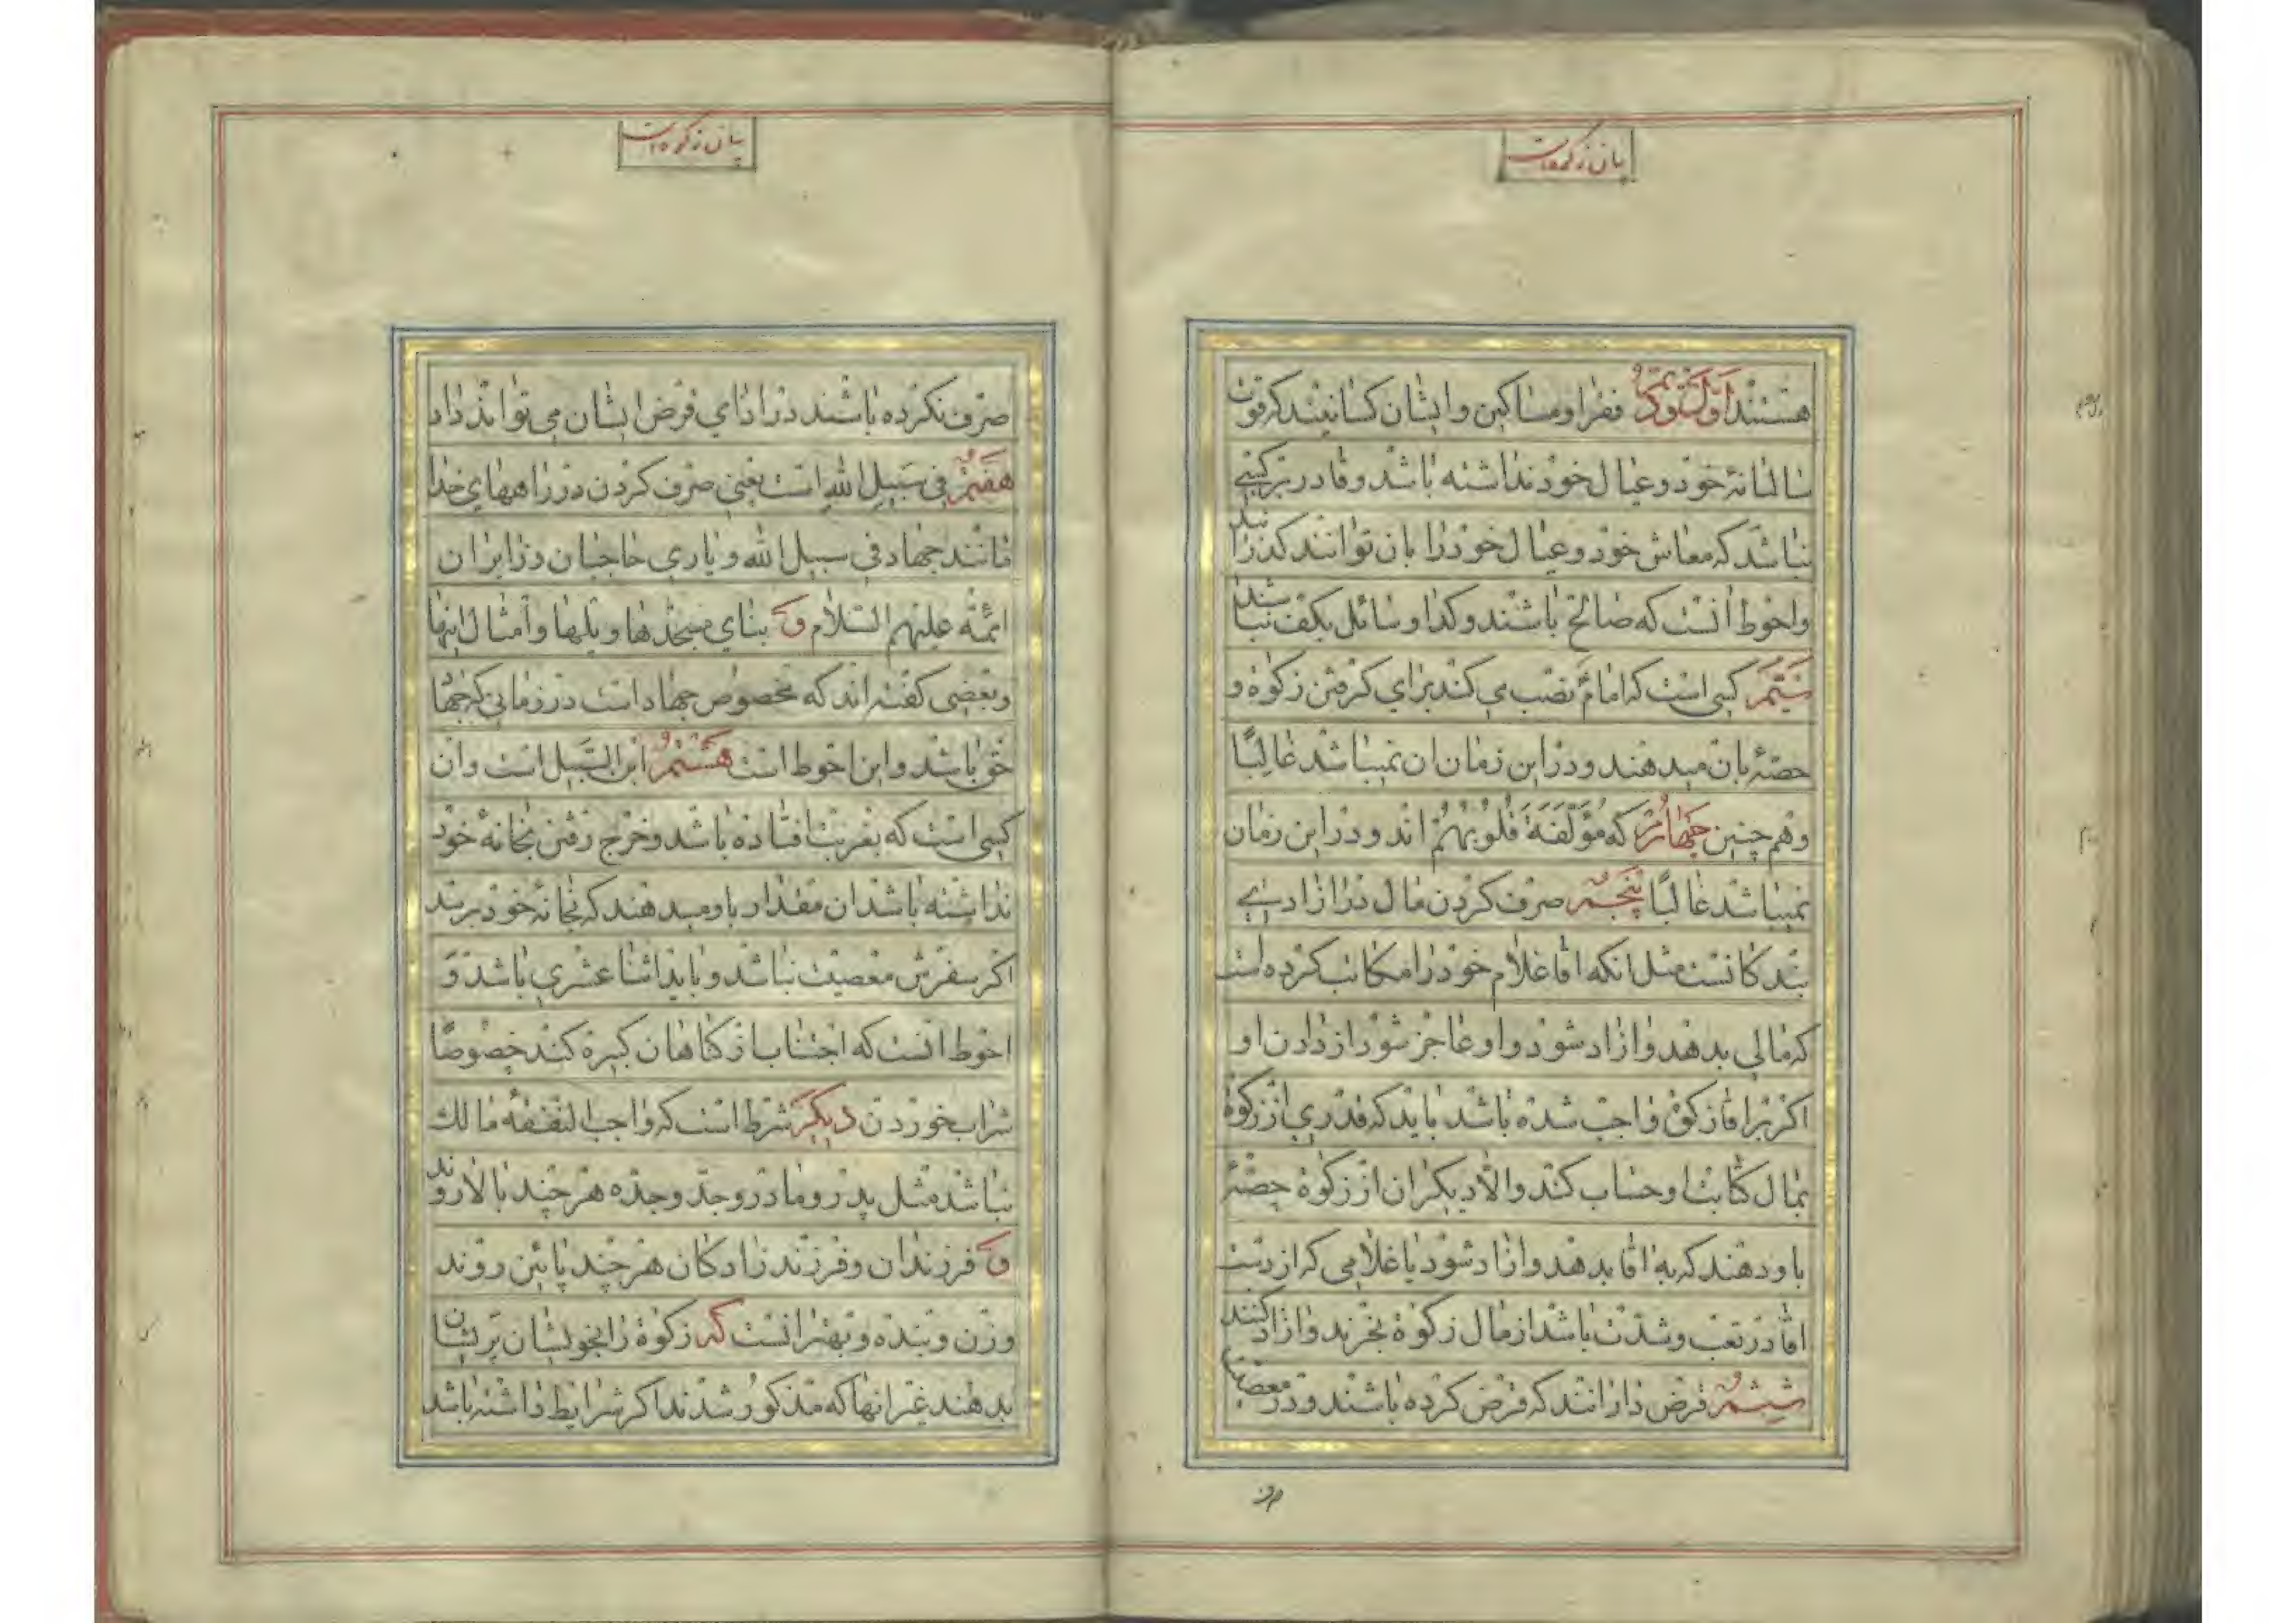 بیان زکوة
هستند اول و دویم فقرا و مساکین و ایشان کسانیند که قوت
سالیانهٔ خود و عیال خود نداشته باشد و قادر بر کسبے
نباشد که معاش خود و عیال خود را بان توانند کذرانید
و احوط انست که صالح باشند و کدا و سائل بکف نباشند
سیّم کسی است که امامؑ نصب می کند برای کرفتن زکوة و
حصّهٔ بان میدهند و در این زمان ان نمیباشد غالبًا
و هم چنین چهارم که مؤلّفة قلوبهم اند و در این زمان
نمیباشد غالبًا پنجم صرف کردن مال در ازادیے
بندکانست مثل انکه اقا غلام خود را مکاتب کرده است
که مالی بدهد و ازاد شود و او عاجز شود از دادن او
اکر بر اقا زکوة واجب شده باشد باید که قدری از زکوة
بمال کتابت او حساب کند و الّا دیکران از زکوة حصّهٔ
باو دهند که به اقا بدهد و ازاد شود یا غلامی که از دست
اقا در تعب و شدّت باشد از مال زکوة بخرند و ازاد کنند
ششم قرض دارانند که قرض کرده باشند و در معصیت
صرف
بیان زکوة
صرف نکرده باشند در ادای قرض ایشان می تواند داد
هفتم فی سبیل الله است یعنی صرف کردن در راههای خدا
مانند جهاد فی سبیل الله و یاری حاجیان و زایران
ائمّه علیهم السّلام و بنای مسجدها و پلها و امثال اینها
و بعضی کفته اند که مخصوص جهاد است در زمانی که جهاد
حق باشد و این احوط است هشتم ابن السّبیل است و ان
کسی است که بغربت افتاده باشد و خرج رفتن بخانهٔ خود
نداشته باشد ان مقدار باو میدهند که بخانهٔ خود برسد
اکر سفرش معصیت نباشد و باید اثنا عشری باشد و
احوط انست که اجتناب از کناهان کبیره کند خصوصًا
شراب خوردن دیکر شرط است که واجب النّفقهٔ مالک
نباشد مثل پدر و مادر و جدّ و جدّه هر چند بالا روند
و فرزندان و فرزند زادکان هر چند پائین روند
و زن و بنده و بهتر انست که زکوة را بخویشان پریشان
بدهند غیر انها که مذکور شدند اکر شرایط داشته باشد